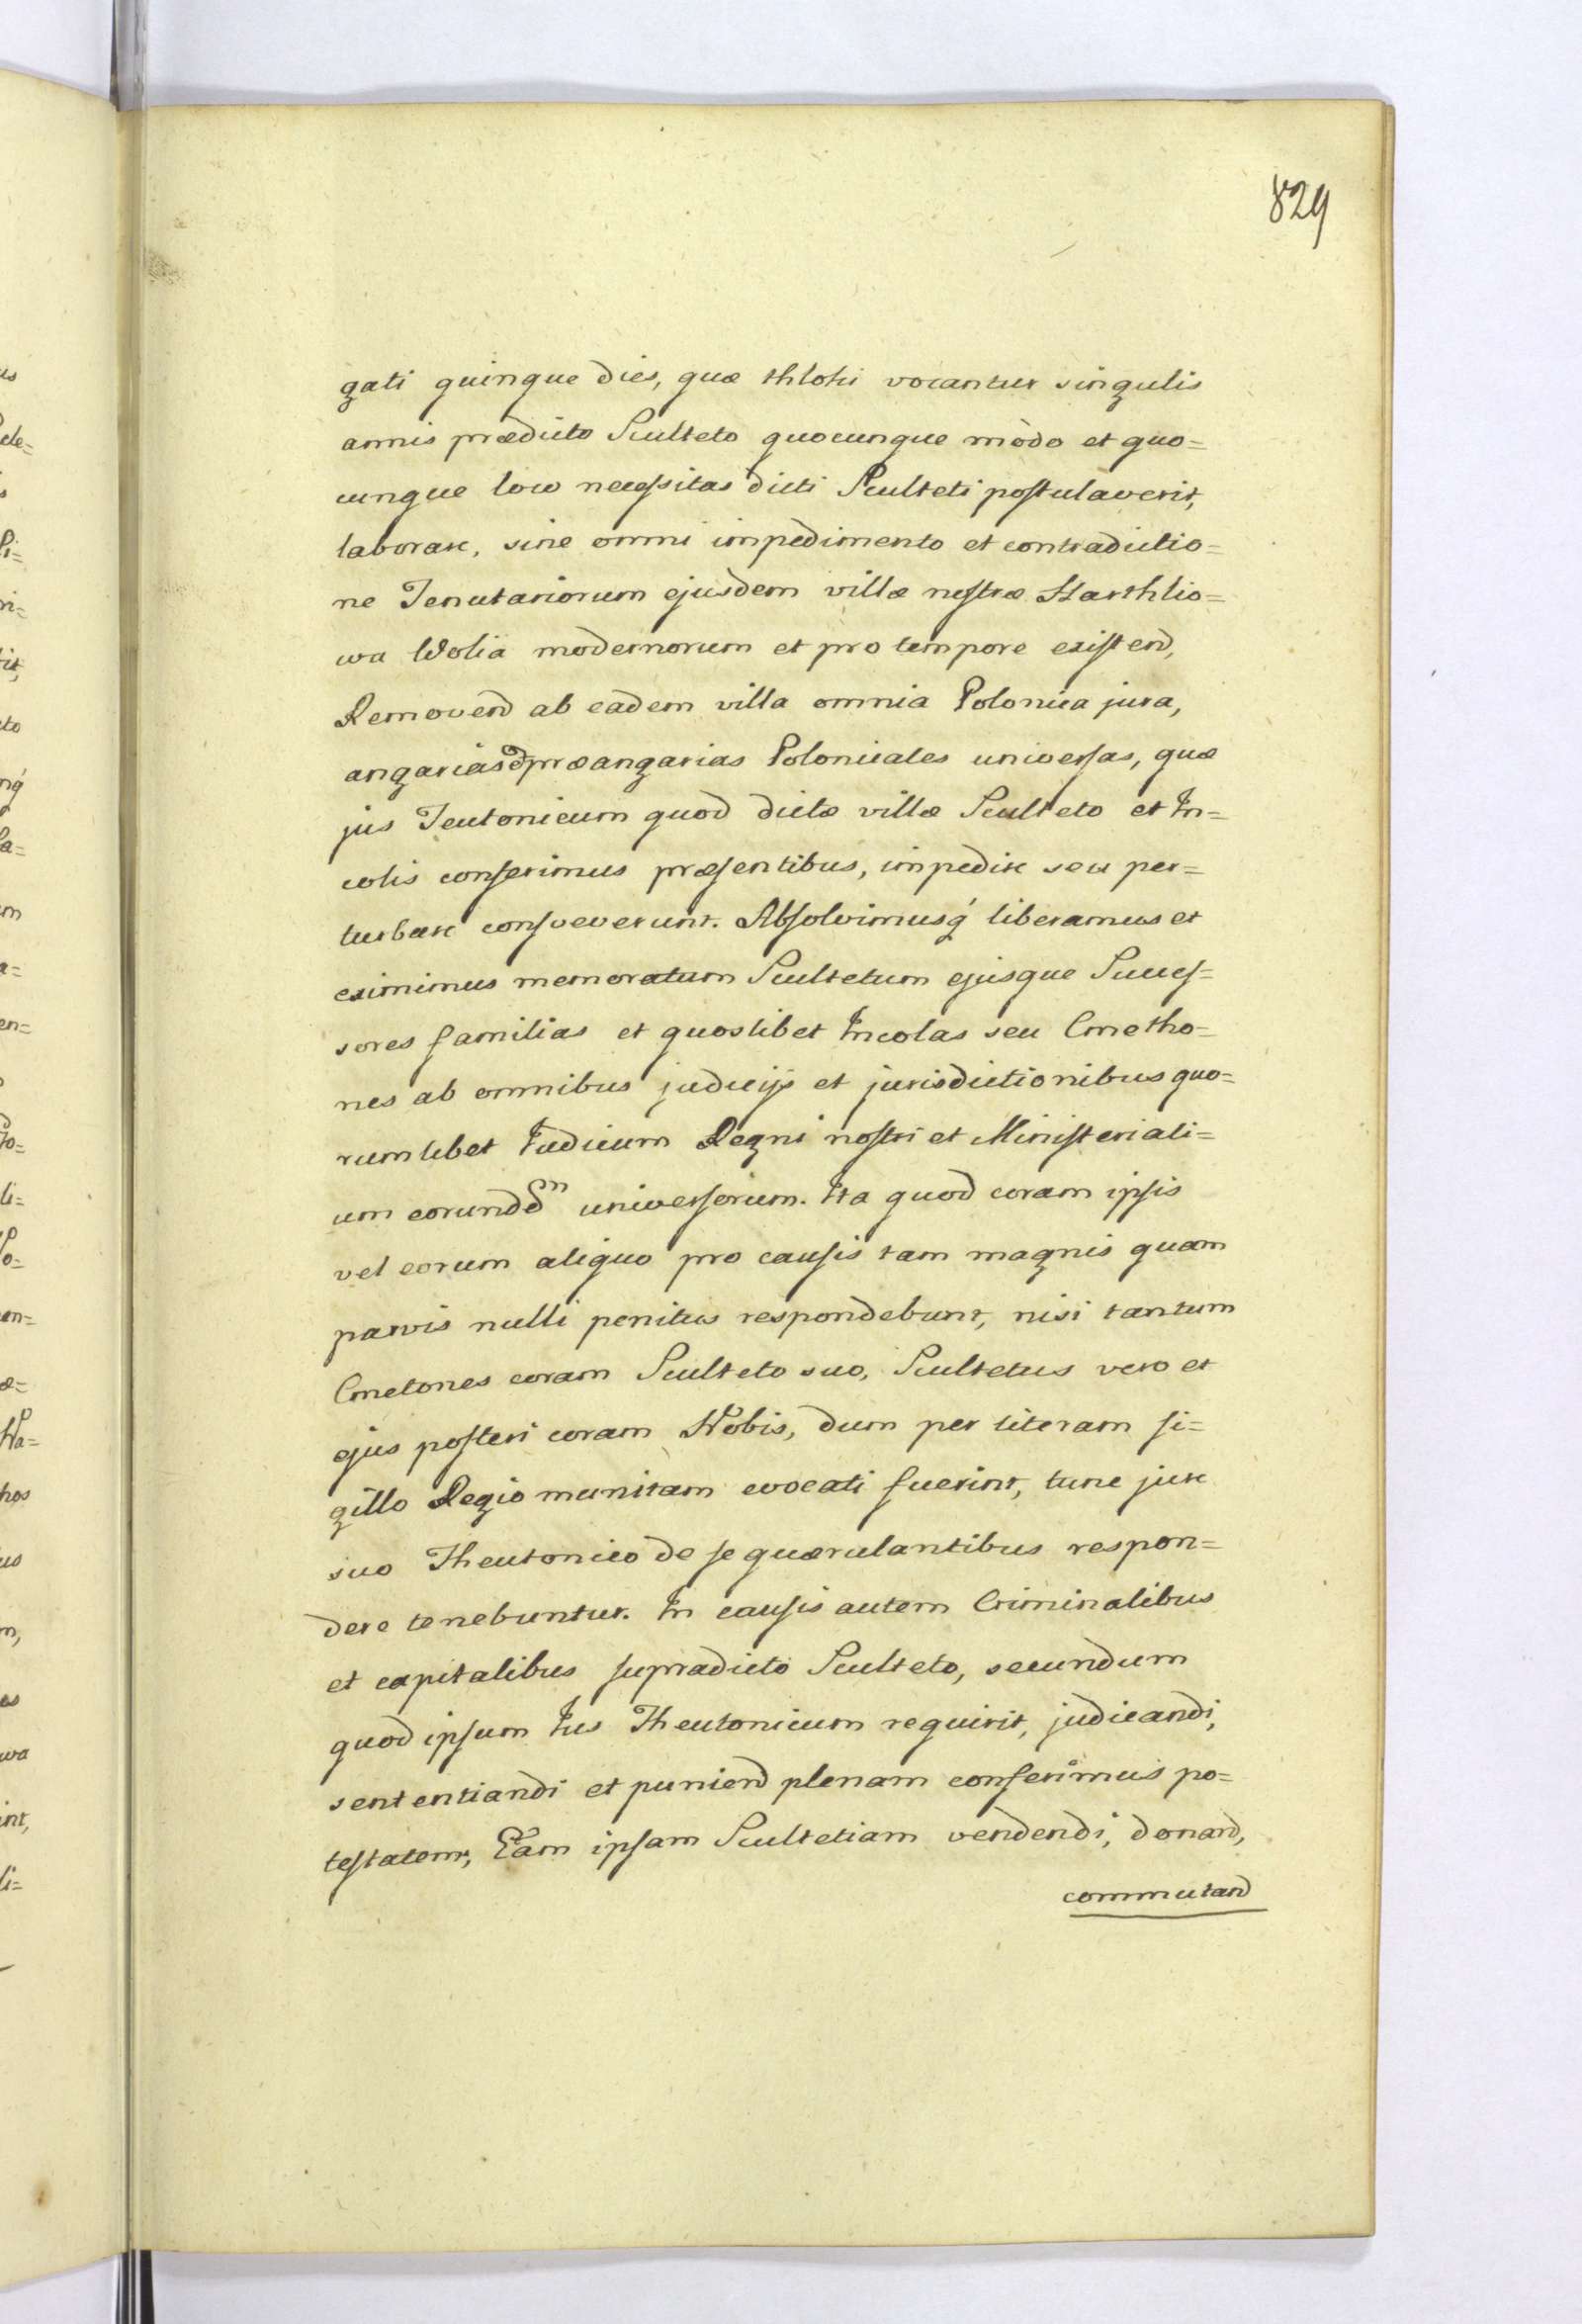 829
gati quinque dies, quæ thloki vocantur singulis
annis prædicto Sculteto quocunque modo et quo=
cunque loco necessitas dicti Sculteti postulaverit,
laborare, sine omni impedimento et contradictio=
ne Tenutariorum ejusdem villæ nostræ Harthlio=
wa Wolia modernorum et pro tempore existend,
Removend ab eadem villa omnia Polonica jura,
angarias & præangarias Polonicales universas, quæ
jus Teutonicum quod dictæ villæ Sculteto et In=
colis conferimus præsentibus, impedire seu per=
turbare consveverunt. Absolvimusq́ liberamus et
eximimus memoratum Scultetum ejusque Succes=
sores familias et quoslibet Incolas seu Cmetho=
nes ab omnibus judicijs et jurisdictionibus quo=
rumlibet Judicum Regni nostri et Ministeriali=
um eorundem universorum. Ita quod coram ipsis
vel eorum aliquo pro causis tam magnis quam
parvis nulli penitus respondebunt, nisi tantum
Cmetones coram Sculteto suo, Scultetus vero et
ejus posteri coram Nobis, dum per literam si=
gillo Regio munitam evocati fuerint, tunc jure
suo Theutonico de se quærulantibus respon=
dere tenebuntur. In causis autem Criminalibus
et capitalibus supradicto Sculteto, secundum
quod ipsum Jus Theutonicum requirit, judicandi,
sententiandi et puniend plenam conferimus po=
testatem, Eam ipsam Scultetiam vendendi, donand,
commutand